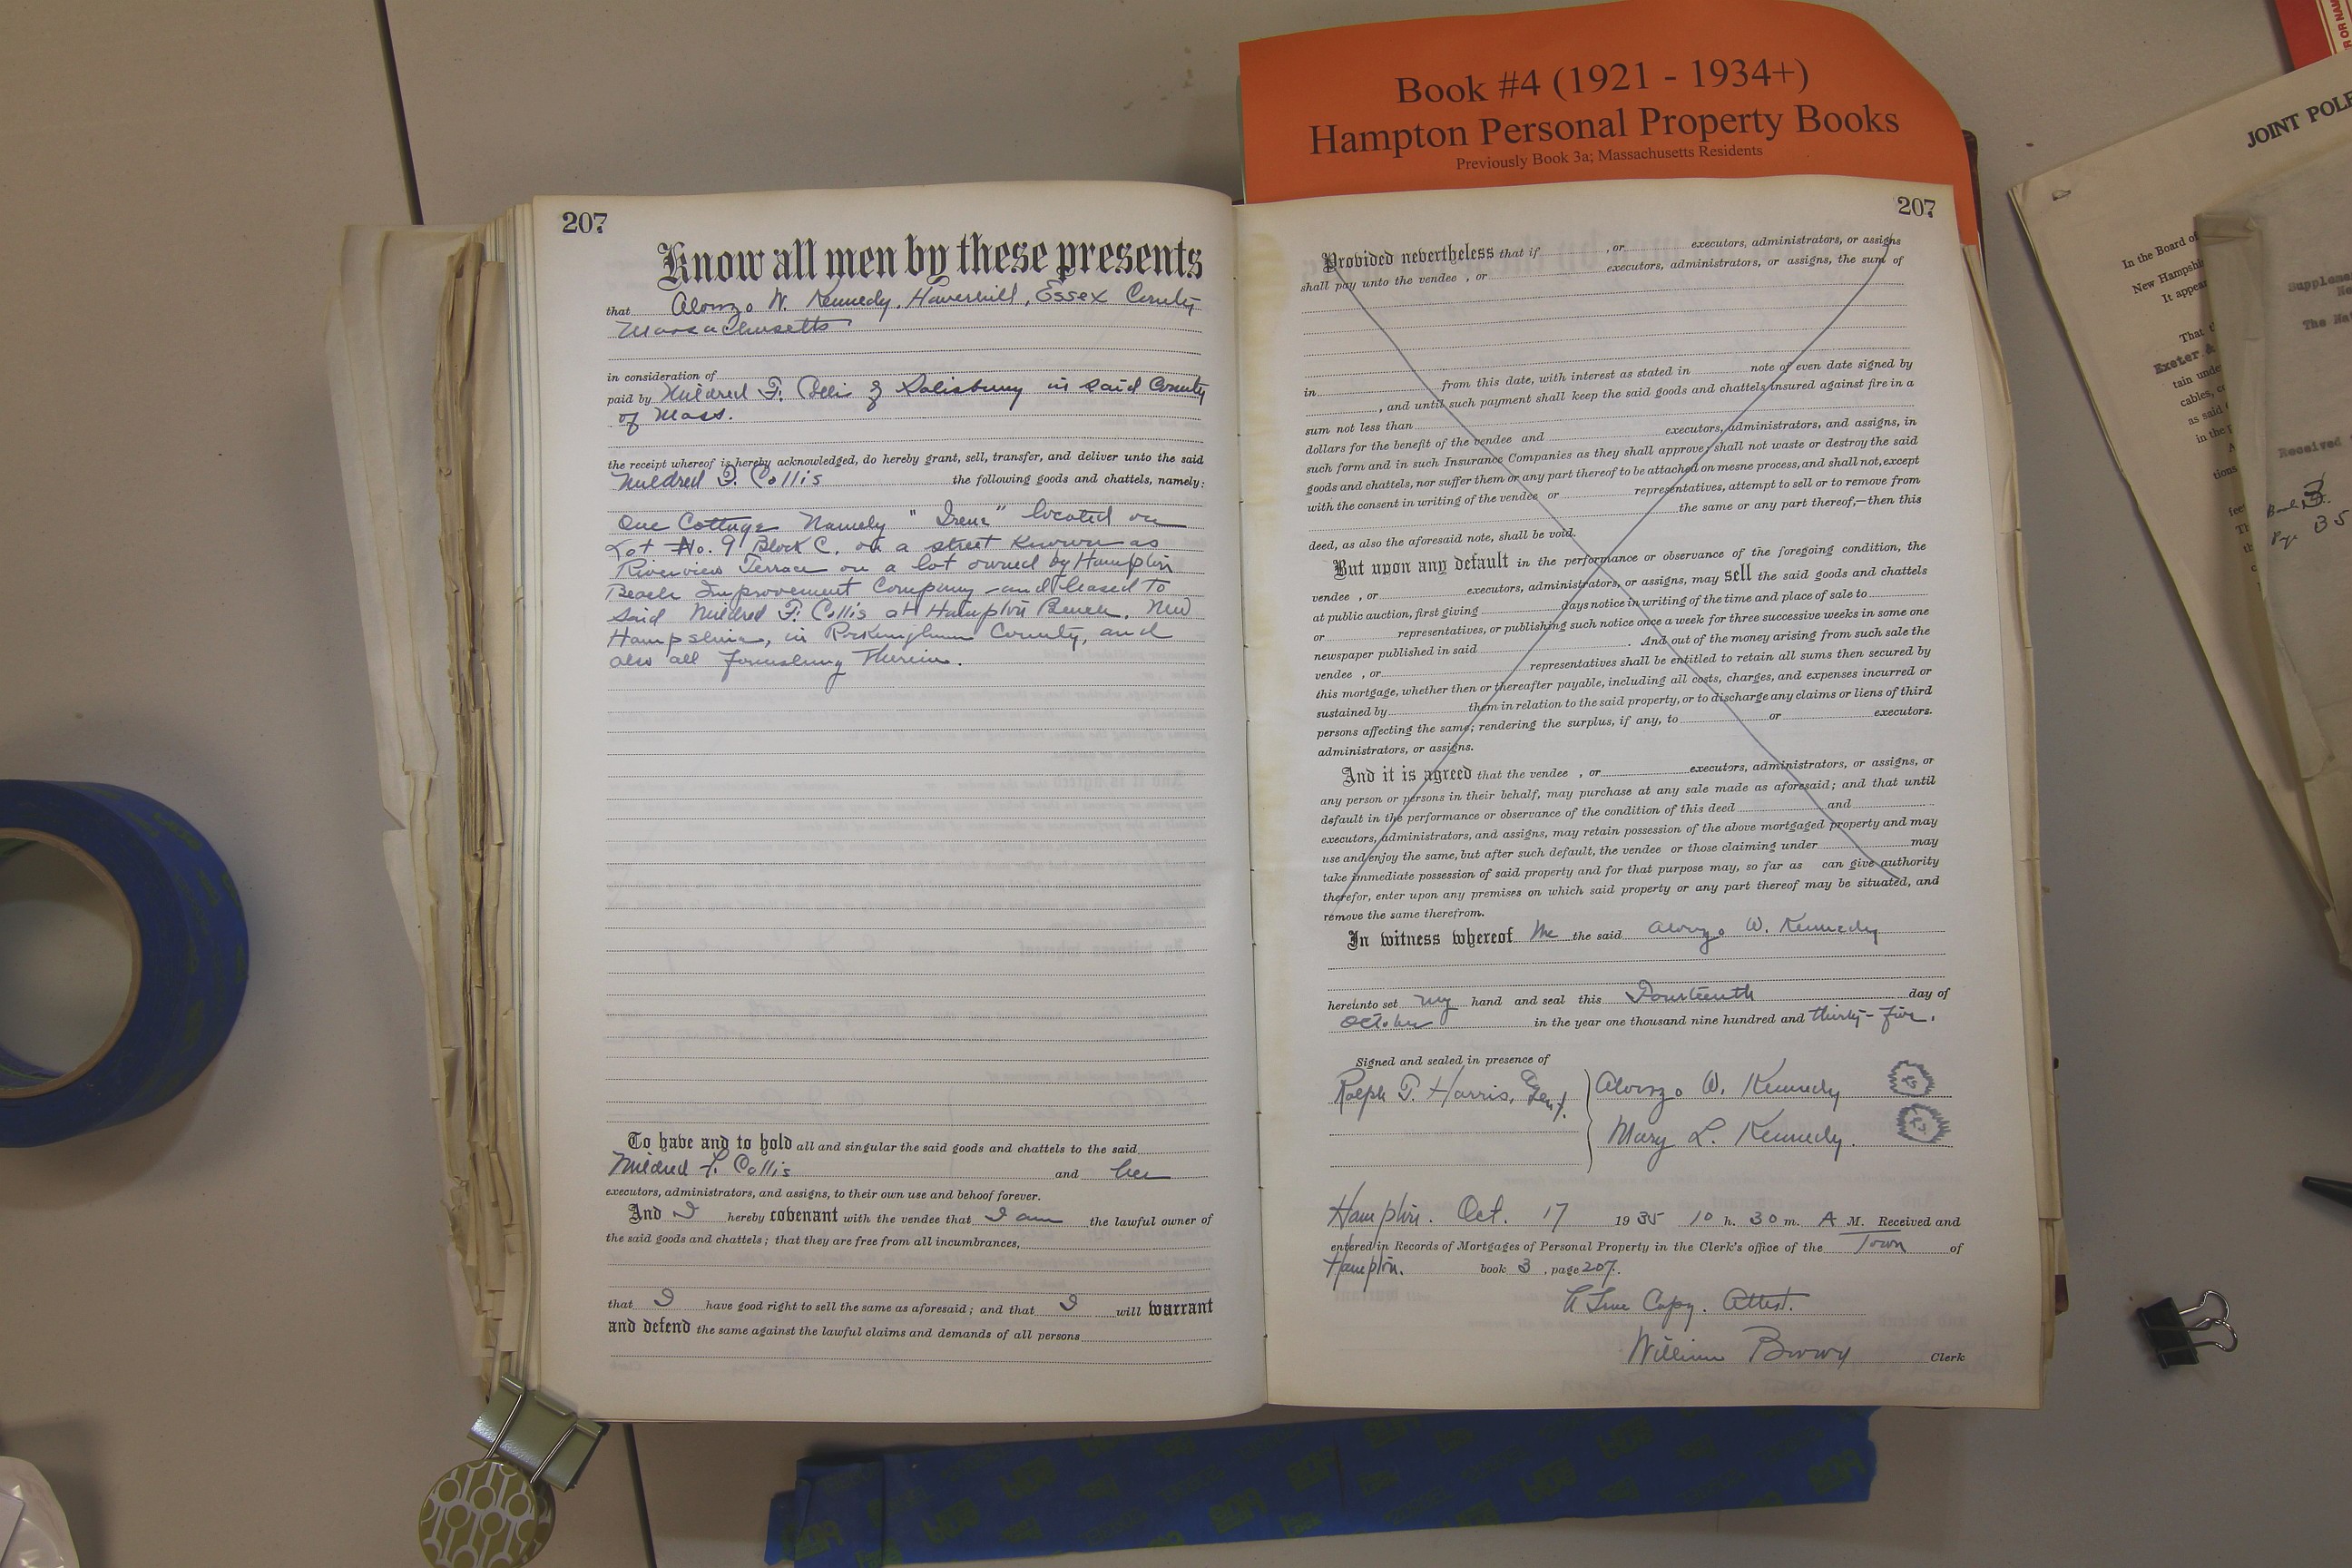 Book #4 (1921 - 1934+)
Hampton Personal Property Books
Previously Book 3a; Massachusetts Residents
207
Know all men by these presents
that Alonzo W. Kennedy, Haverhill, Essex County
Massachusetts
in consideration of
paid by Mildred F. Collis of Salisbury in said County
of Mass.
the receipt whereof is hereby acknowledged, do hereby grant, sell, transfer, and deliver unto the said
Mildred F. Collis the following goods and chattels, namely:
One Cottage Namely " Irene" located on
Lot No. 9 Block C. on a street Known as
Riverview Terrace on a lot owned by Hampton
Beach Improvement Company and leased to
said Mildred F. Collis at Hampton Beach. New
Hampshire, in Rockingham County, and
also all furnishing Therein.
To have and to hold all and singular the said goods and chattels to the said
Mildred F. Collis and her
executors, administrators, and assigns, to their own use and behoof forever.
And I hereby covenant with the vendee that I am the lawful owner of
the said goods and chattels; that they are free from all incumbrances,
that I have good right to sell the same as aforesaid; and that I will warrant
and defend the same against the lawful claims and demands of all persons
207
Provided nevertheless that if , or executors, administrators, or assigns
shall pay unto the vendee , or executors, administrators, or assigns, the sum of
in from this date, with interest as stated in note of even date signed by
, and until such payment shall keep the said goods and chattels insured against fire in a
sum not less than
dollars for the benefit of the vendee and executors, administrators, and assigns, in
such form and in such Insurance Companies as they shall approve; shall not waste or destroy the said
goods and chattels, nor suffer them or any part thereof to be attached on mesne process, and shall not, except
with the consent in writing of the vendee or representatives, attempt to sell or to remove from
the same or any part thereof,—then this
deed, as also the aforesaid note, shall be void.
But upon any default in the performance or observance of the foregoing condition, the
vendee , or executors, administrators, or assigns, may sell the said goods and chattels
at public auction, first giving days notice in writing of the time and place of sale to
or representatives, or publishing such notice once a week for three successive weeks in some one
newspaper published in said . And out of the money arising from such sale the
vendee , or representatives shall be entitled to retain all sums then secured by
this mortgage, whether then or thereafter payable, including all costs, charges, and expenses incurred or
sustained by them in relation to the said property, or to discharge any claims or liens of third
persons affecting the same; rendering the surplus, if any, to or executors.
administrators, or assigns.
And it is agreed that the vendee , or executors, administrators, or assigns, or
any person or persons in their behalf, may purchase at any sale made as aforesaid; and that until
default in the performance or observance of the condition of this deed and
executors, administrators, and assigns, may retain possession of the above mortgaged property and may
use and enjoy the same, but after such default, the vendee or those claiming under may
take immediate possession of said property and for that purpose may, so far as can give authority
therefor, enter upon any premises on which said property or any part thereof may be situated, and
remove the same therefrom.
In witness whereof the said Alonzo W. Kennedy
hereunto set my hand and seal this Fourteenth day of
October in the year one thousand nine hundred and thirty-five.
Signed and sealed in presence of
Ralph T. Harris, Agent.
Alonzo W. Kennedy
Mary L. Kennedy.
Hampton. Oct. 17 1935 10 h. 30 m. A M. Received and
entered in Records of Mortgages of Personal Property in the Clerk's office of the Town of
Hampton. book 3 , page 207.
A True Copy. Attest.
William Brown Clerk
JOINT POLE
In the Board of
New Hampshire
It appear
That
Exeter &
tain unde
cables, co
as said
in the p
Supplem
The Nat
Received
Book 3